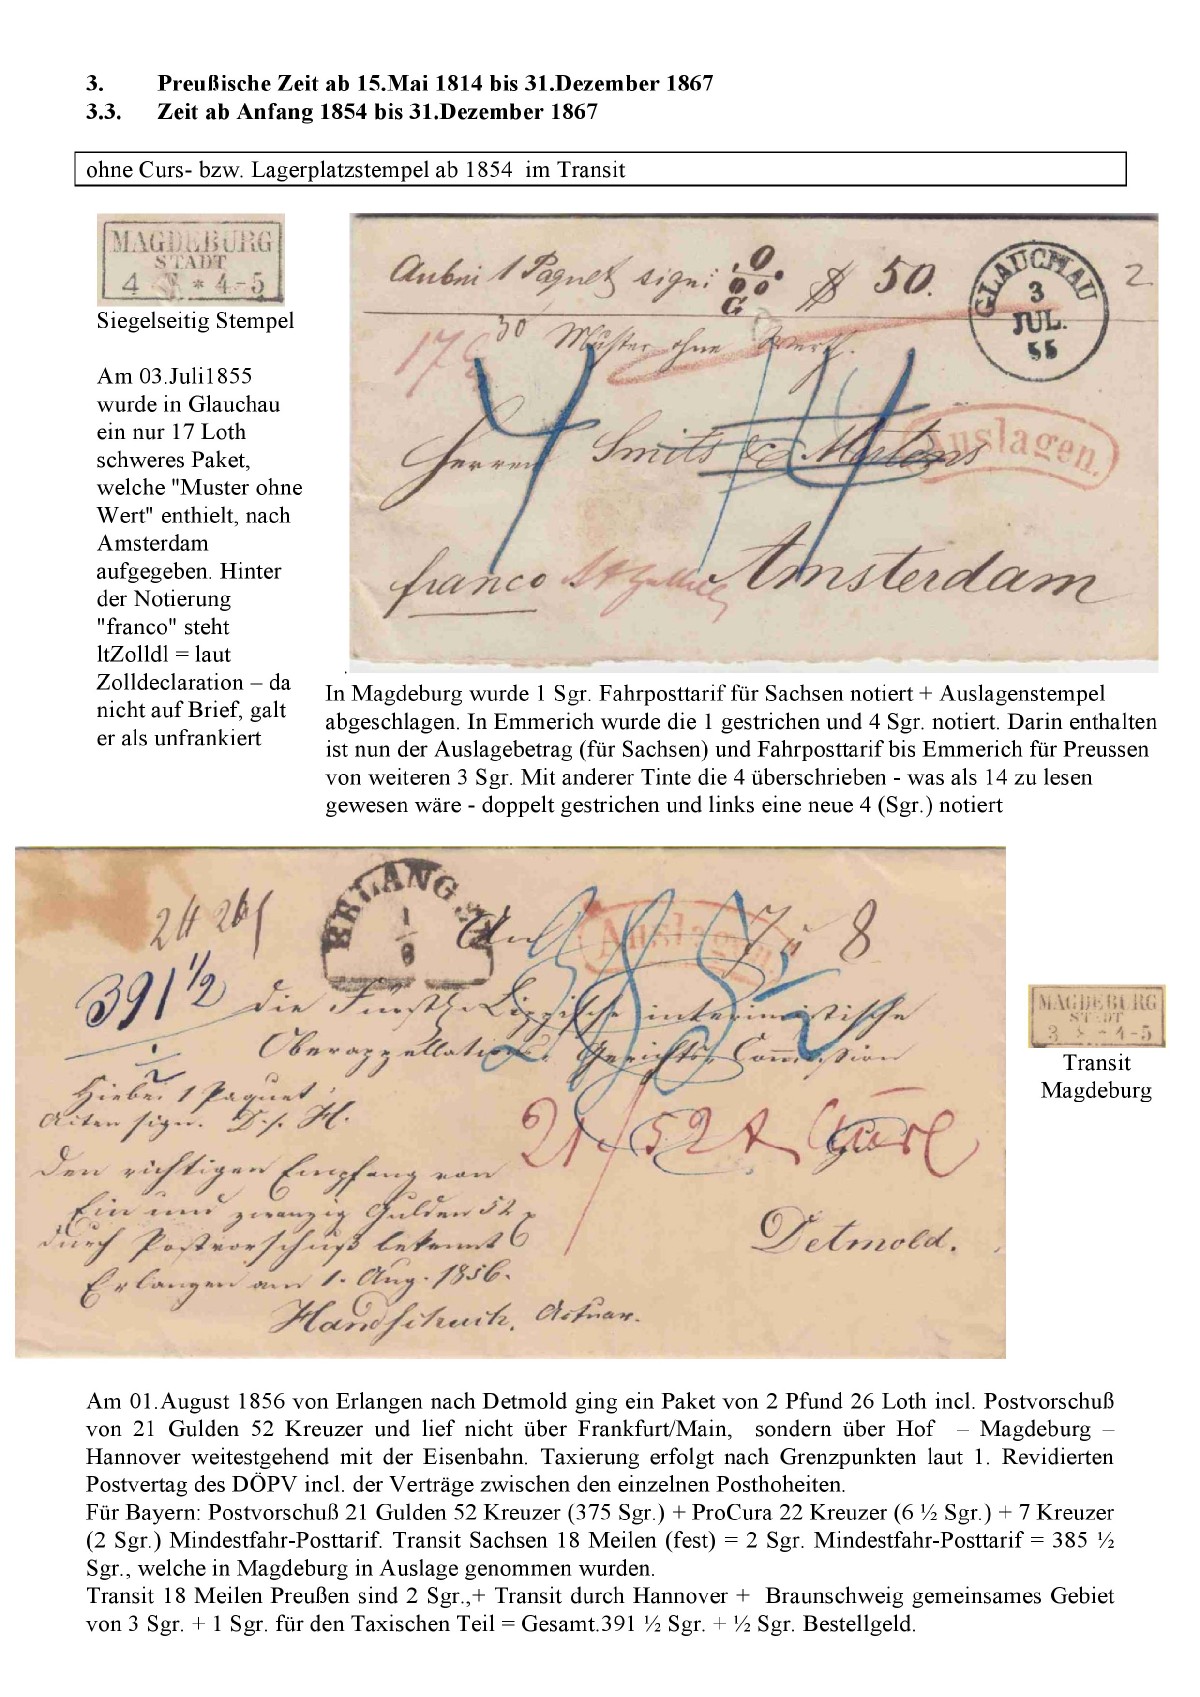 3. Preußische Zeit ab 15.Mai 1814 bis 31.Dezember 1867
3.3. Zeit ab Anfang 1854 bis 31.Dezember 1867
ohne Curs- bzw. Lagerplatzstempel ab 1854 im Transit
MAGDEBURG
STADT
4 * 4-5
Siegelseitig Stempel
Am 03.Juli1855
wurde in Glauchau
ein nur 17 Loth
schweres Paket,
welche "Muster ohne
Wert" enthielt, nach
Amsterdam
aufgegeben. Hinter
der Notierung
"franco" steht
ltZolldl = laut
Zolldeclaration – da
nicht auf Brief, galt
er als unfrankiert
1 Paquet sign: G 50.
GLAUCHAU
3
JUL.
55
2
Muster ohne Werth.
Auslagen.
Herren Smits & Mertens
franco Amsterdam
In Magdeburg wurde 1 Sgr. Fahrposttarif für Sachsen notiert + Auslagenstempel
abgeschlagen. In Emmerich wurde die 1 gestrichen und 4 Sgr. notiert. Darin enthalten
ist nun der Auslagebetrag (für Sachsen) und Fahrposttarif bis Emmerich für Preussen
von weiteren 3 Sgr. Mit anderer Tinte die 4 überschrieben - was als 14 zu lesen
gewesen wäre - doppelt gestrichen und links eine neue 4 (Sgr.) notiert
ERLANGEN
1
8
An
Auslagen.
391 1/2
die Fürstl. Lippische interimistische
Oberappellations-Gerichts-Commission
Hiebei 1 Paquet
Akten sign. D. H.
21 52
Den richtigen Empfang von
Ein und zwanzig Gulden 52
durch Postvorschuß bekennt
Erlangen am 1. Aug. 1856.
Handschuch, Actuar.
Detmold.
MAGDEBURG
STADT
3 8 - 4-5
Transit
Magdeburg
Am 01.August 1856 von Erlangen nach Detmold ging ein Paket von 2 Pfund 26 Loth incl. Postvorschuß
von 21 Gulden 52 Kreuzer und lief nicht über Frankfurt/Main, sondern über Hof – Magdeburg –
Hannover weitestgehend mit der Eisenbahn. Taxierung erfolgt nach Grenzpunkten laut 1. Revidierten
Postvertag des DÖPV incl. der Verträge zwischen den einzelnen Posthoheiten.
Für Bayern: Postvorschuß 21 Gulden 52 Kreuzer (375 Sgr.) + ProCura 22 Kreuzer (6 ½ Sgr.) + 7 Kreuzer
(2 Sgr.) Mindestfahr-Posttarif. Transit Sachsen 18 Meilen (fest) = 2 Sgr. Mindestfahr-Posttarif = 385 ½
Sgr., welche in Magdeburg in Auslage genommen wurden.
Transit 18 Meilen Preußen sind 2 Sgr.,+ Transit durch Hannover + Braunschweig gemeinsames Gebiet
von 3 Sgr. + 1 Sgr. für den Taxischen Teil = Gesamt.391 ½ Sgr. + ½ Sgr. Bestellgeld.